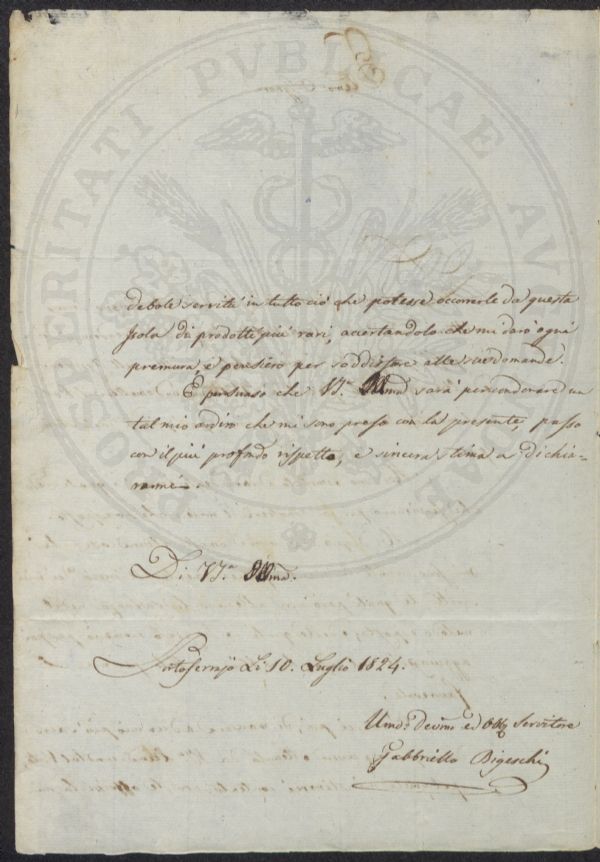 POSTERITATI PVBLICAE AVCTAE PRO
debole servitù in tutto ciò che potesse occorrerle da questa
Isola di prodotti più rari, accertandolo che mi darò ogni
premura, e pensiero per soddisfare alle sue domande.
E persuaso che V.S. Illma sarà per condonare un
tal mio ardire che mi sono preso con la presente, passo
con il più profondo rispetto, e sincera stima a dichia-
rarme
Di V.S. Illma.
Portoferrajo Li 10. Luglio 1824.
Umo. Devmo ed Obb Servitore
Gabbriello Bigeschi